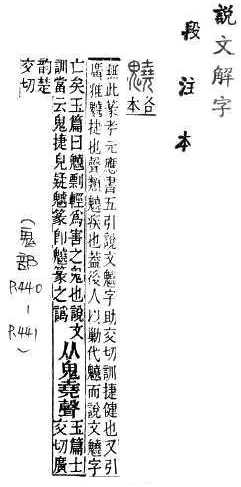 說文解字
段注本
䰫各
本
無此篆考元應書五引說文䰫字助交切訓捷健也又引
廣雅䰫捷也聲類䰫疾也葢後人以勦代䰫而說文䰫字
亡矣玉篇曰䰫剽輕爲害之鬼也說文
訓當云鬼捷皃疑篆卽䰫篆之譌
从鬼堯聲
玉篇士
交切廣
韵楚
交切
(鬼部
P.440
-
P.441
)